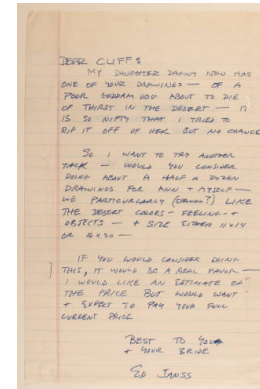 DEAR CLIFF:
MY DAUGHTER DAWN NOW HAS
ONE OF YOUR DRAWINGS — OF A
POOR GODDAM DOG ABOUT TO DIE
OF THIRST IN THE DESERT — IT
IS SO NIFTY THAT I TRIED TO
RIP IT OFF OF HER BUT NO CHANCE
SO I WANT TO TRY ANOTHER
TACK — WOULD YOU CONSIDER
DOING ABOUT A HALF A DOZEN
DRAWINGS FOR ANN + MYSELF —
WE PARTICULARLY LIKE
THE DESERT COLORS — FEELING +
OBJECTS — + SIZE EITHER 11X14
OR 16X20 —
IF YOU WOULD CONSIDER DOING
THIS, IT WOULD BE A REAL FAVOR —
I WOULD LIKE AN ESTIMATE OF
THE PRICE BUT WOULD WANT
+ EXPECT TO PAY YOUR FULL
CURRENT PRICE
BEST TO YOU
+ YOUR BRIDE
ED JANSS